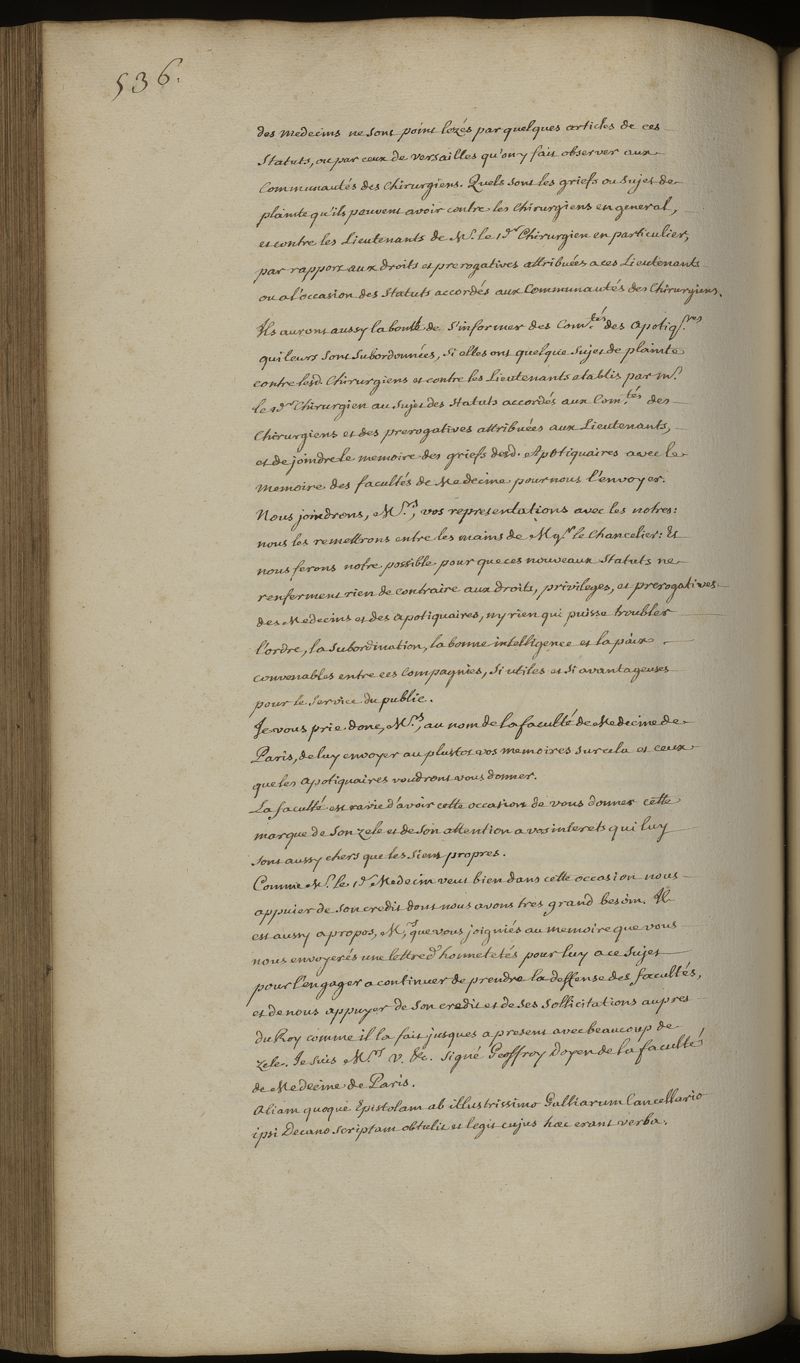 536.
des medecins ne sont point lezés par quelques articles de ces
statuts, ou par ceux de versailles qu'on y fait observer aux
Communautés des chirurgiens. Quels sont les griefs ou sujet de
plainte qu'ils peuvent avoir contre les chirurgiens en general,
et contre les Lieutenants de Mr. le 1er Chirurgien en particulier,
par rapport aux droits et prerogatives attribuées a ces Lieutenants
ou a l'occasion des statuts accordés aux Communautés des Chirurgiens.
Ils auront aussy la bonté de s'informer des Com.tés des Apotiq.res
qui leurs sont subordonnées, si elles ont quelque sujet de plainte
contre lesd. Chirurgiens et contre les Lieutenants etablis par Mr.
le 1er Chirurgien au sujet des statuts accordés aux Com.tés des
chirurgiens et des prerogatives attribuées aux Lieutenants,
et de joindre le memoire des griefs desd. Apotiquaires avec le
memoire des facultés de Medecine pour nous l'envoyer.
Nous joindrons, Mrs., vos representations avec les notres:
nous les remettrons entre les mains de Mgr. le Chancelier: Et
nous ferons notre possible pour que ces nouveaux statuts ne
renferment rien de contraire aux droits, privileges, et prerogatives
des Medecins et des apotiquaires, ny rien qui puisse troubler
l'ordre, la subordination, la bonne intelligence et la paix
convenables entre ces Compagnies, si utiles et si avantageuses
pour le service du public.
Je vous prie donc, Mrs., au nom de la faculté de Medecine de
Paris, de luy envoyer au plustot vos memoires sur cela et ceux
que les apotiquaires voudront vous donner.
La faculté est ravie d'avoir cette occasion de vous donner cette
marque de son zele et de son attention a vos interets qui luy
sont aussy chers que les siens propres.
Comme Mr. le 1er Medecin veut bien dans cette occasion nous
appuier de son credit dont nous avons tres grand besoin. Il
est aussy apropos, Mrs, que vous joigniés au memoire que vous
nous envoyerés une lettre d'honnetetés pour luy a ce sujet
pour l'engager a continuer de prendre la deffense des facultés,
et de nous appuyer de son credit et de ses sollicitations aupres
du Roy comme il la fait jusques a present avec beaucoup de
zele. Je suis Mrs. v. &c. signé Geoffroy Doyen de la faculté
de Medecine de Paris.
Aliam quoque Epistolam ab illustrissimo Galliarum Cancellario
ipsi Decano scriptam obtulit et legit cujus hæc erant verba.